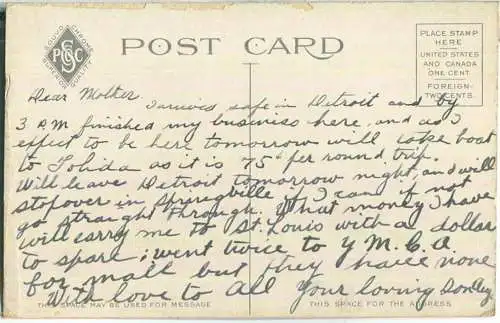 POST CARD
PLACE STAMP
HERE
UNITED STATES
AND CANADA
ONE CENT
FOREIGN-
TWO CENTS.
Dear Mother
I arrived safe in Detroit and by
3 P.M. finished my business here, and as I
expect to be here tomorrow will take boat
to Tolida as it is 75¢ per round trip.
Will leave Detroit tomorrow night, and will
stop over in Springville if I can if not
go straight through. What money I have
will carry me to St. Louis with a dollar
to spare; went twice to Y M.C.A.
for mall but they have none
With love to All Your loving
THIS SPACE MAY BE USED FOR MESSAGE
THIS SPACE FOR THE ADDRESS